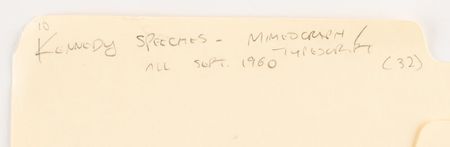 10
KENNEDY SPEECHES - MIMEOGRAPH /
TYPESCRIPT
ALL SEPT. 1960 (32)